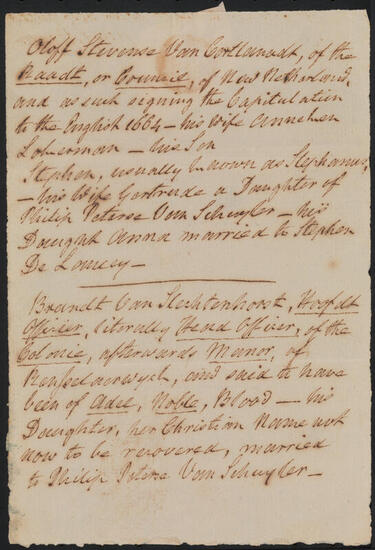 Oloff Stevense Van Cortlanadt, of the
Raadt, or Council, of New Netherland,
and as such signing the Capitulation
to the English 1664 — his Wife Anneken
Lokerman — his Son
Stephen, usually known as Stephanus,
— his Wife Gertrude a Daughter of
Philip Peterse Van Schuyler — his
Daught Anna married to Stephen
De Lancey —
Brandt Van Slechtenhorst, Hoofdt
Officier, literally Head Officer, of the
Colonie, afterwards Manor, of
Rensselaerwyck, and said to have
been of Adel, Noble, Blood — his
Daughter, her Christian Name not
now to be recovered, married
to Philip Peterse Van Schuyler —